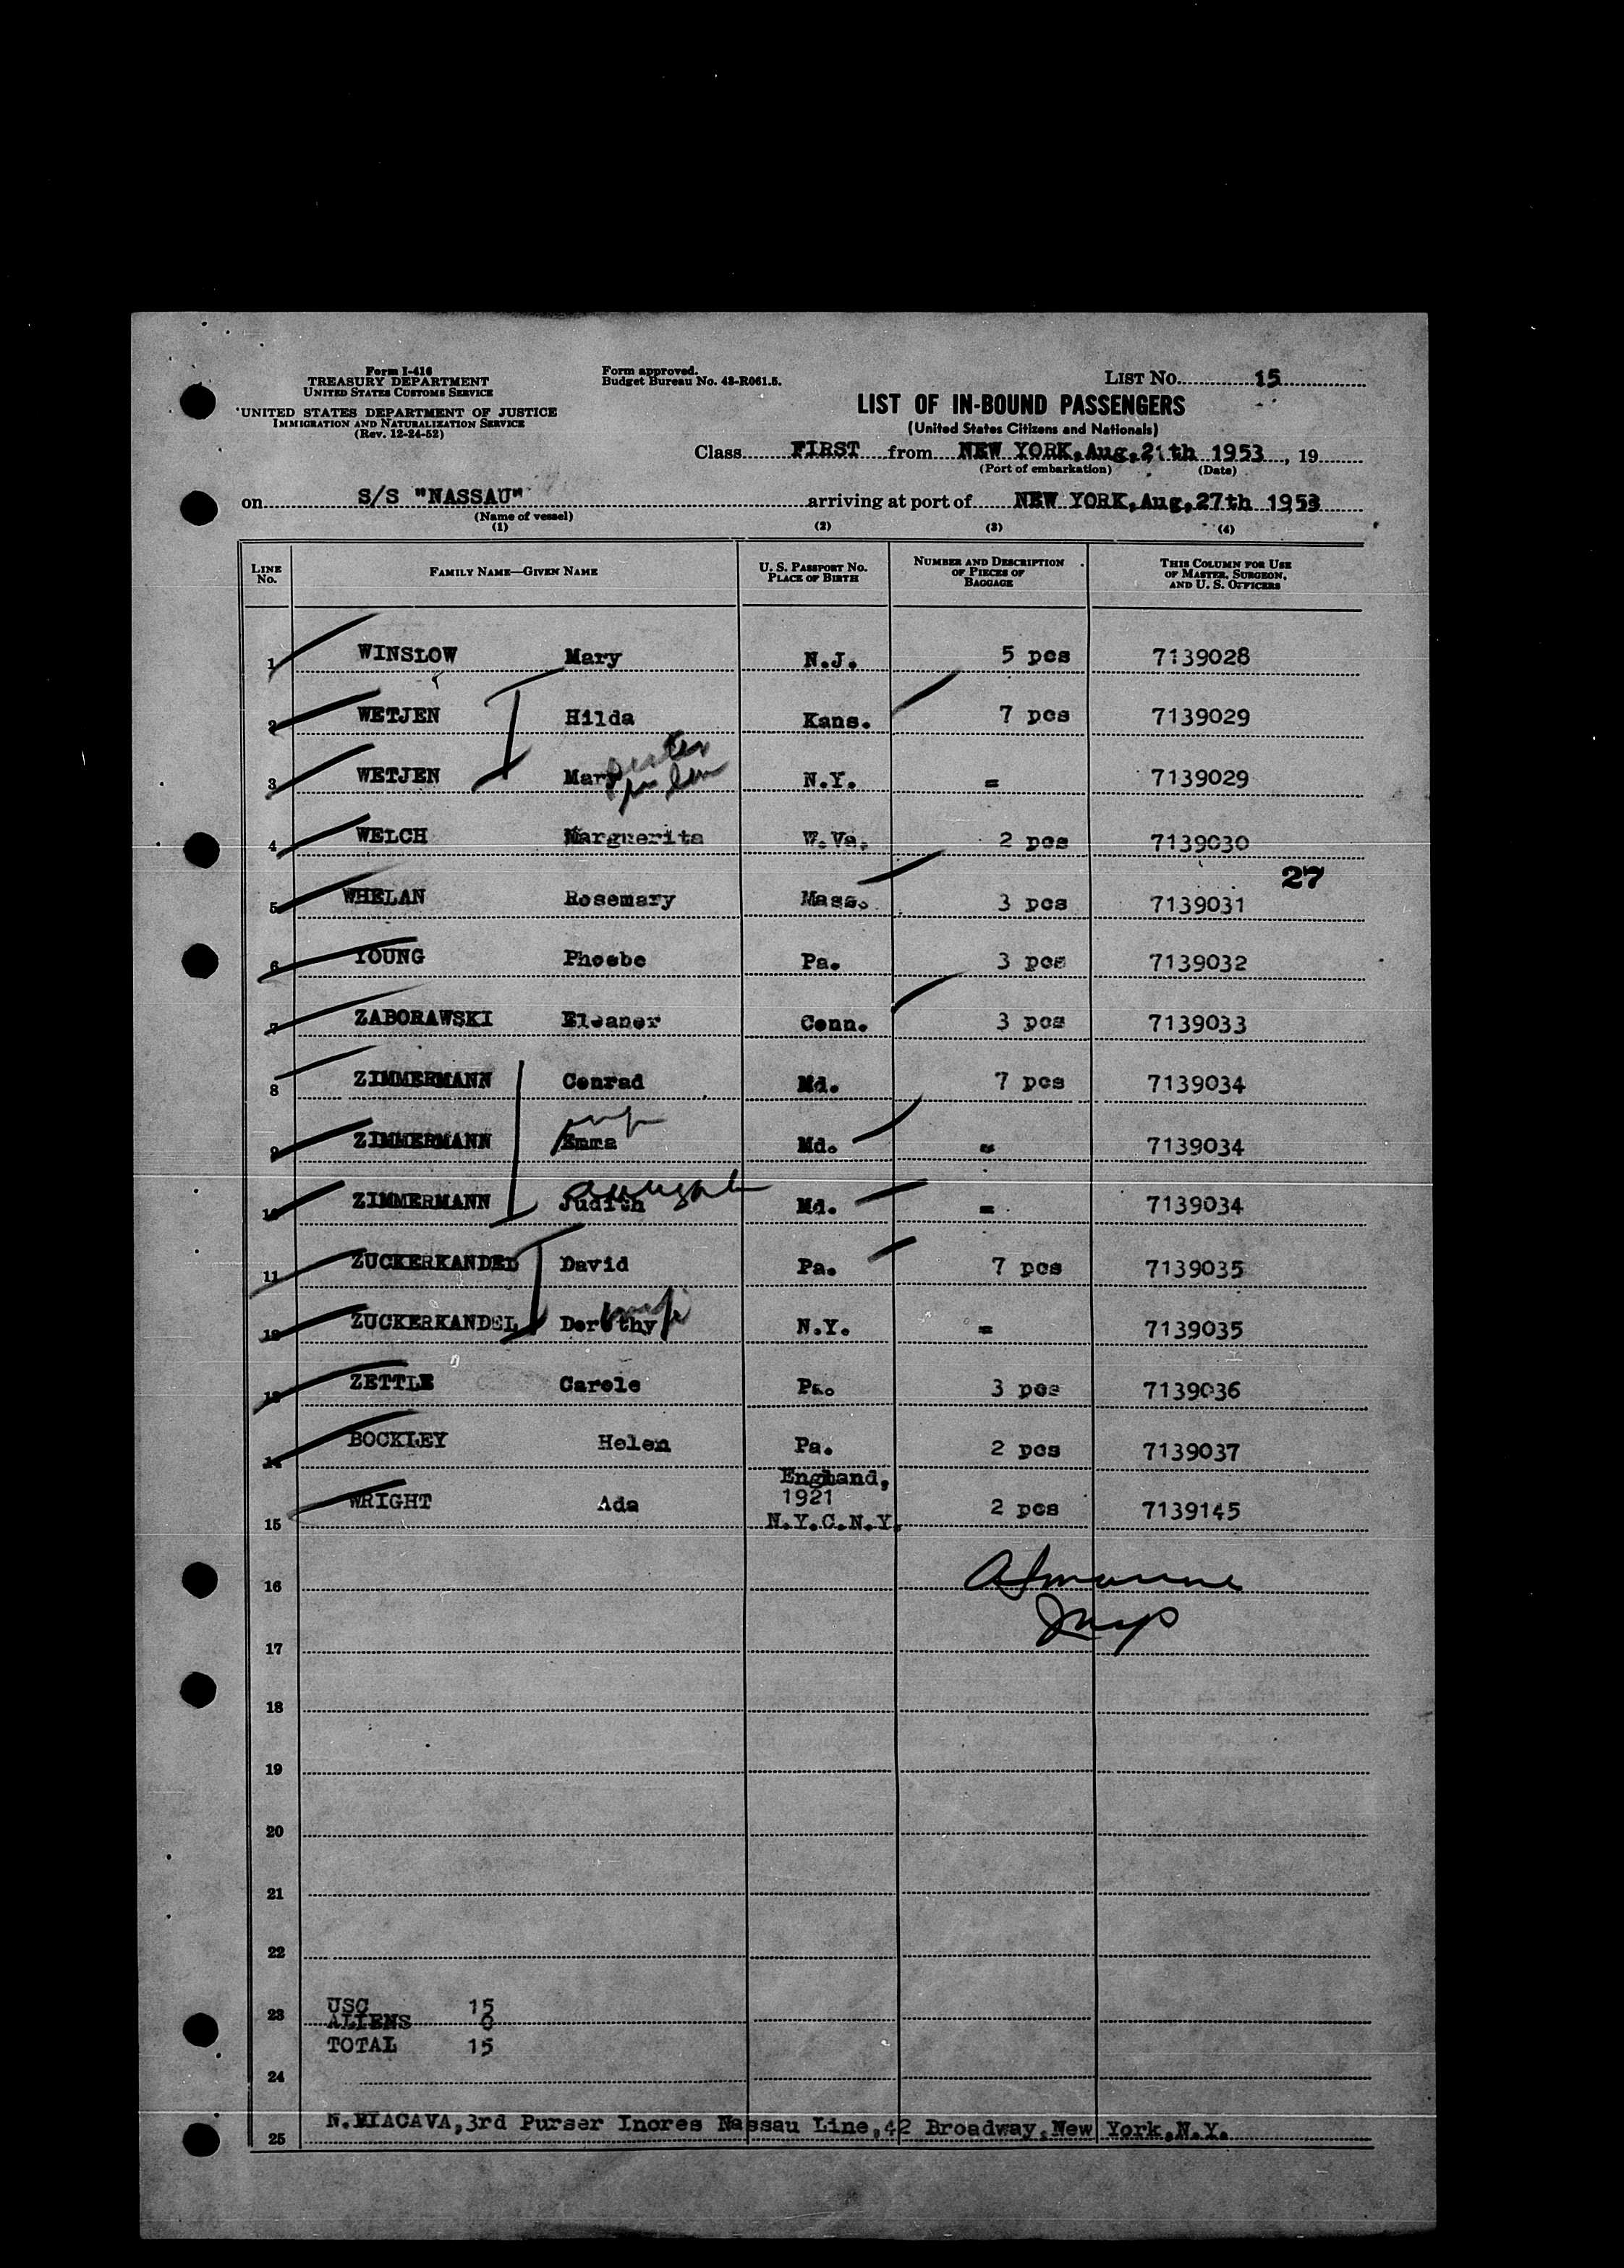 Form I-416
TREASURY DEPARTMENT
UNITED STATES CUSTOMS SERVICE
UNITED STATES DEPARTMENT OF JUSTICE
IMMIGRATION AND NATURALIZATION SERVICE
(Rev. 12-24-52)
Form approved.
Budget Bureau No. 43-R061.5.
LIST No. 15
LIST OF IN-BOUND PASSENGERS
(United States Citizens and Nationals)
Class FIRST from NEW YORK, Aug, 21th 1953, 19
(Port of embarkation) (Date)
on S/S "NASSAU" arriving at port of NEW YORK, Aug, 27th 1953
(Name of vessel)
(1) (2) (3) (4)
LINE No. FAMILY NAME—GIVEN NAME U. S. PASSPORT No. PLACE OF BIRTH NUMBER AND DESCRIPTION OF PIECES OF BAGGAGE THIS COLUMN FOR USE OF MASTER, SURGEON, AND U. S. OFFICERS
1 WINSLOW Mary N.J. 5 pcs 7139028
2 WETJEN Hilda Kans. 7 pcs 7139029
3 WETJEN Mary N.Y. = 7139029
4 WELCH Marguerita W.Va. 2 pcs 7139030
27
5 WHELAN Rosemary Mass. 3 pcs 7139031
6 YOUNG Phoebe Pa. 3 pcs 7139032
7 ZABORAWSKI Eleanor Conn. 3 pcs 7139033
8 ZIMMERMANN Conrad Md. 7 pcs 7139034
9 ZIMMERMANN Emma Md. = 7139034
10 ZIMMERMANN Judith Md. = 7139034
11 ZUCKERKANDEL David Pa. 7 pcs 7139035
12 ZUCKERKANDEL Dorothy N.Y. = 7139035
13 ZETTLE Carole Pa. 3 pcs 7139036
14 BOCKLEY Helen Pa. 2 pcs 7139037
15 WRIGHT Ada England, 1921 N.Y.C.N.Y. 2 pcs 7139145
16
17
18
19
20
21
22
23 USC 15
ALIENS 0
TOTAL 15
24
25 N.VIACAVA, 3rd Purser Inores Nassau Line, 42 Broadway, New York, N.Y.